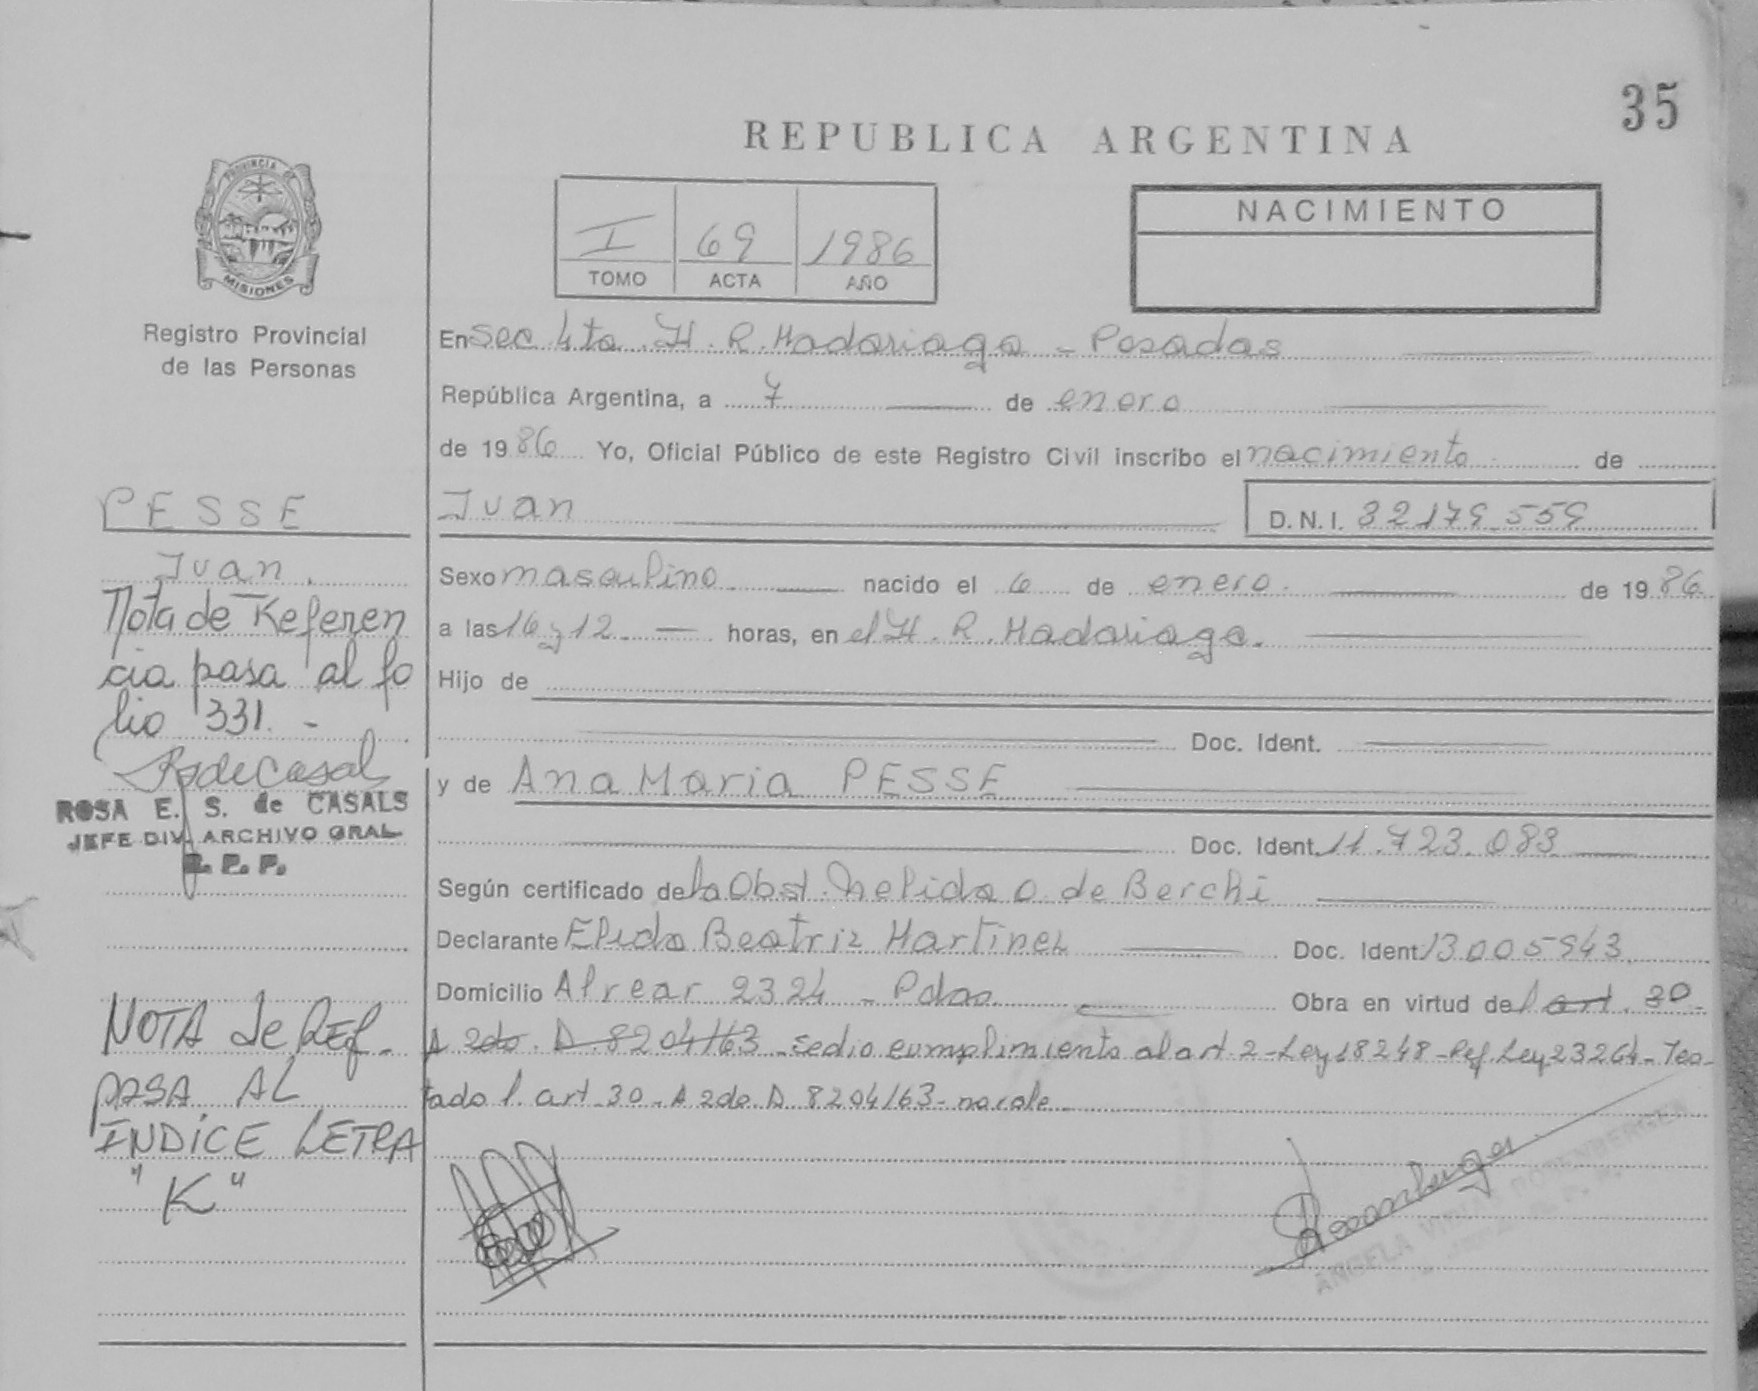 35
REPUBLICA ARGENTINA
PROVINCIA DE
MISIONES
Registro Provincial
de las Personas
I 69 1986
TOMO ACTA AÑO
NACIMIENTO
En Sec 4ta. H. R. Madariaga - Posadas
República Argentina, a 7 de enero
de 1986 Yo, Oficial Público de este Registro Civil inscribo el nacimiento de
PESSE
Juan
D. N. I. 32179559
Juan.
Sexo masculino nacido el 6 de enero. de 1986
a las 16 y 12 horas, en el H. R. Madariaga.
Hijo de
Doc. Ident.
y de Ana Maria PESSE
Doc. Ident. 11.723.083
Según certificado de la Obst. Nelida O. de Berchi
Declarante Elida Beatriz Martinez Doc. Ident 13005943
Domicilio Alvear 2324 - Pdas. Obra en virtud del art. 30-
A 2do. D. 8204/63 - se dio cumplimiento al art 2 - Ley 18248 - Ref. Ley 23264 - Tes-
tado l. art. 30 - A 2do D. 8204/63 - no vale
Nota de Referen
cia pasa al fo
lio 331. -
ROSA E. S. de CASALS
JEFE DIV. ARCHIVO GRAL
R. P. P.
NOTA de REF.
PASA AL
INDICE LETRA
"K"
ANGELA ROTENBERGER